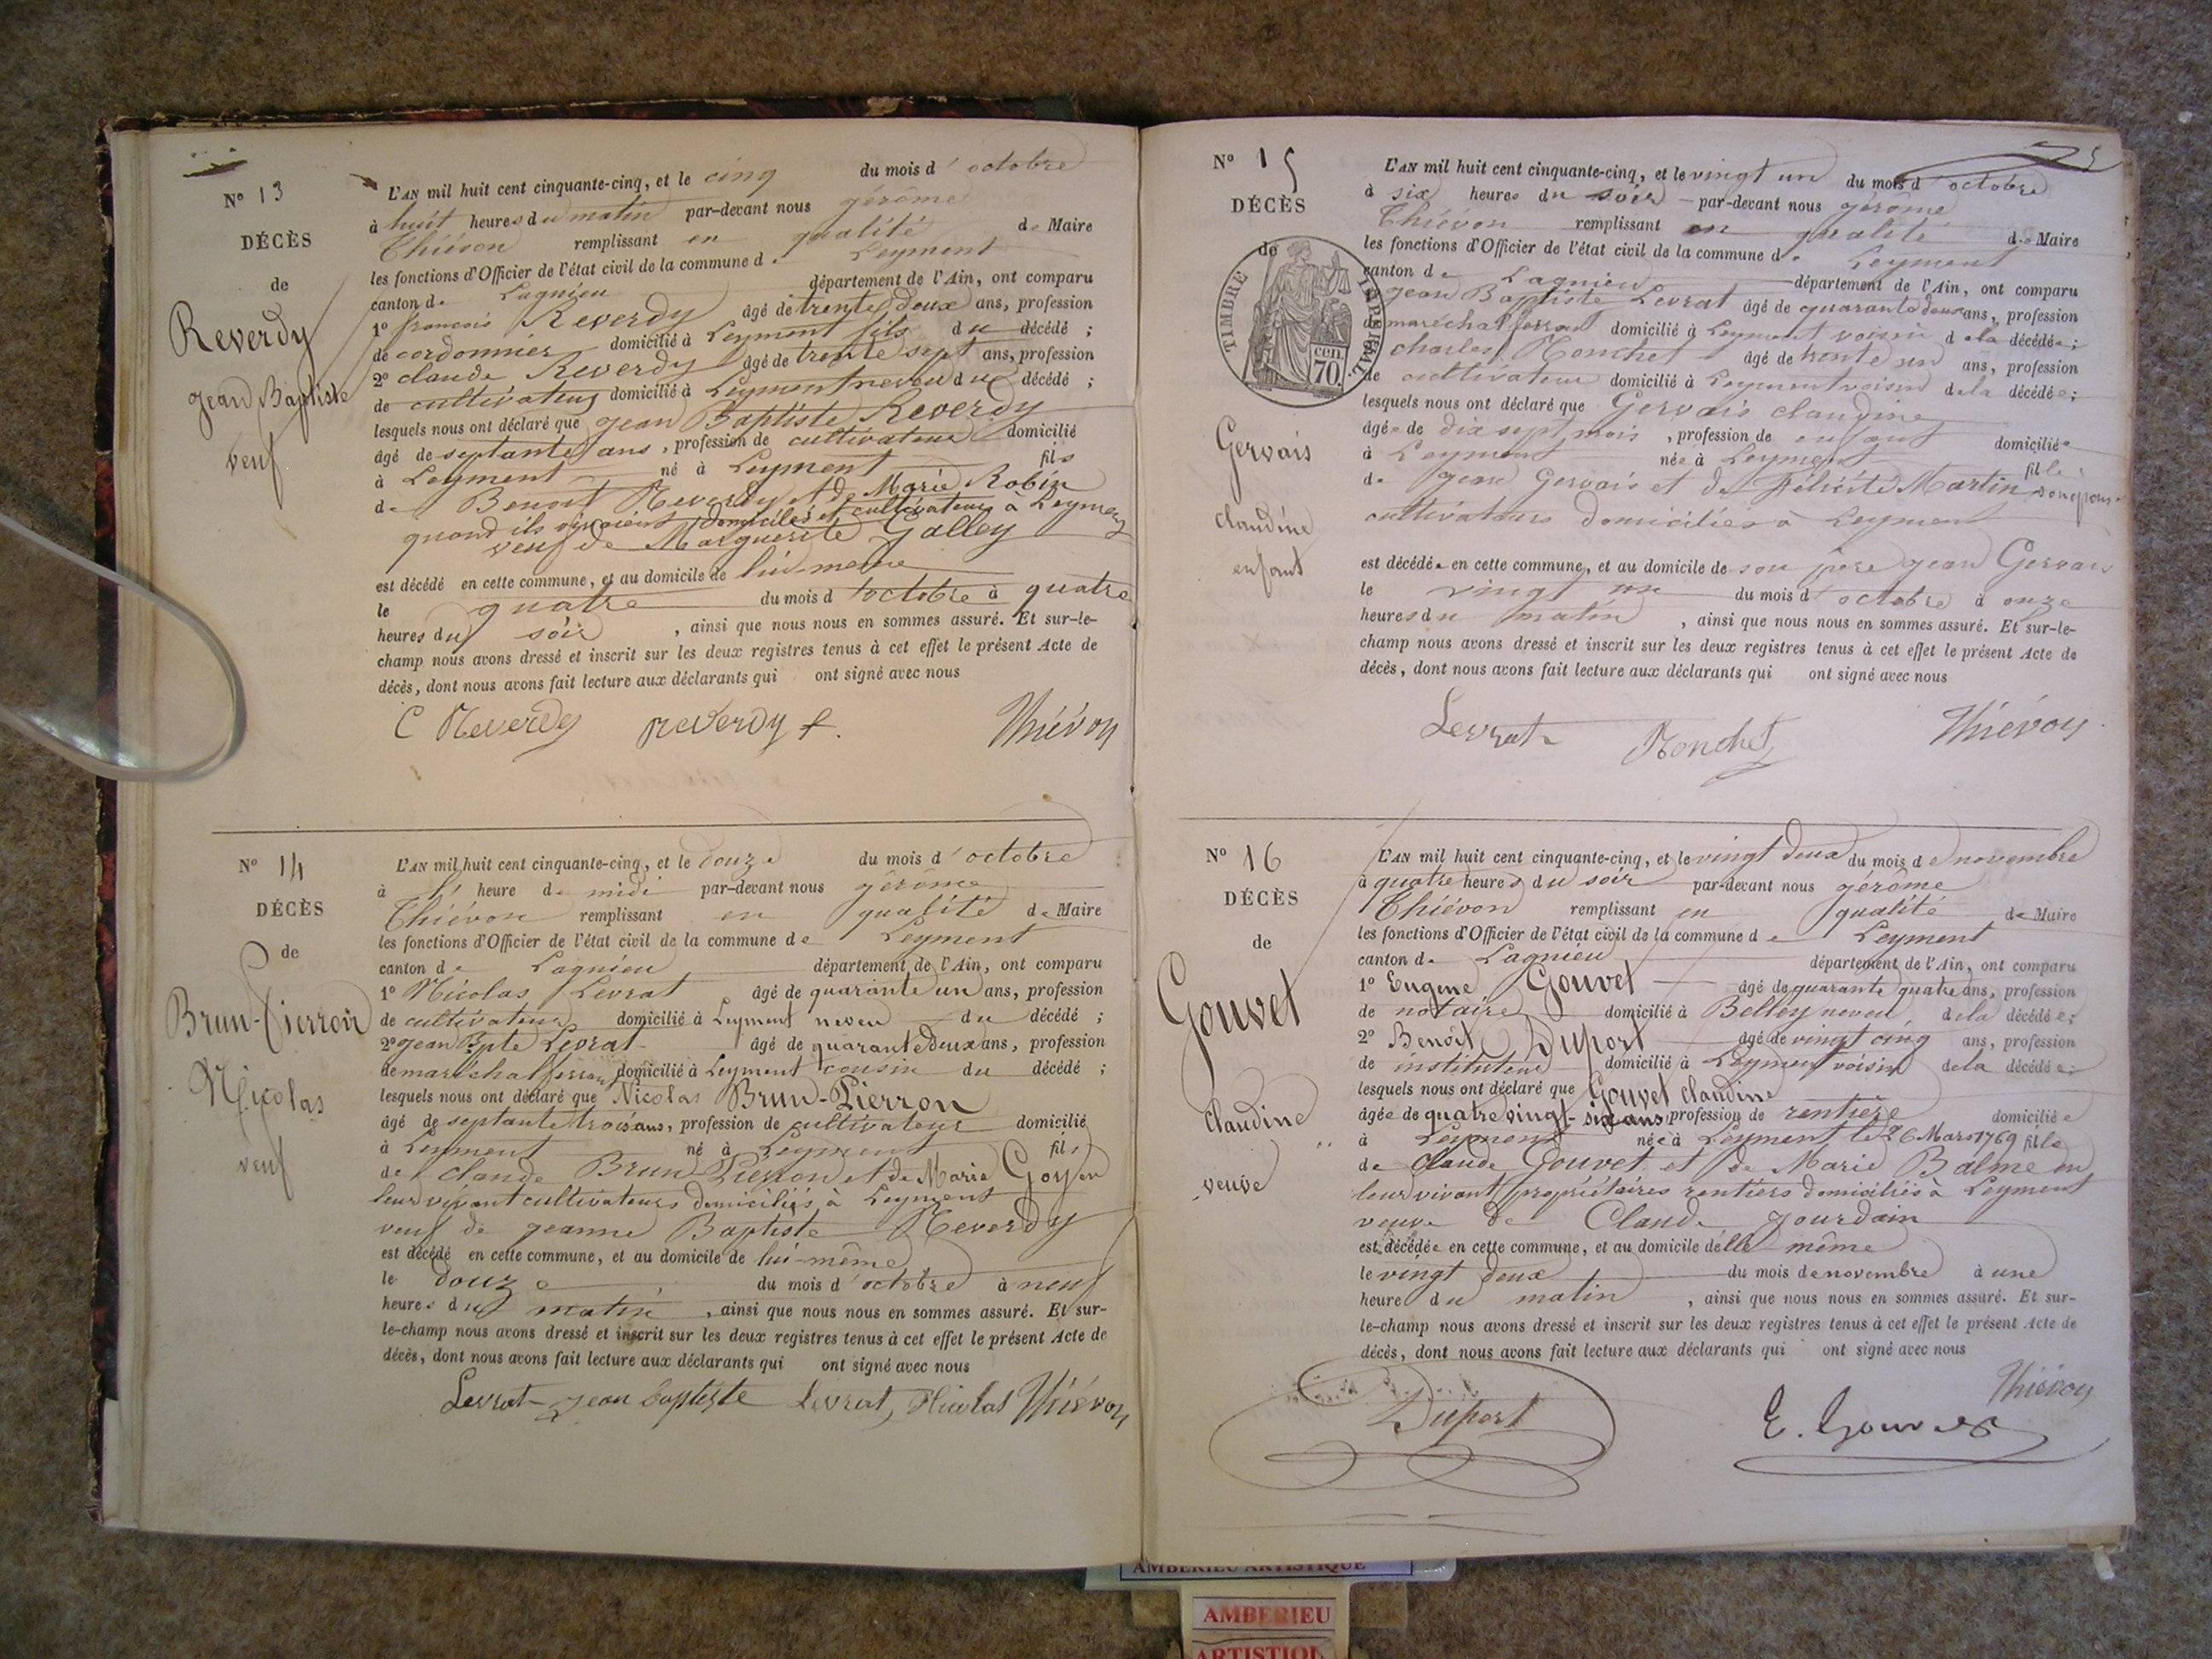 N° 13
DÉCÈS
de
Reverdy
Jean Baptiste
veuf
L'AN mil huit cent cinquante-cinq, et le cinq du mois d'octobre
à huit heures du matin par-devant nous gérôme
Thiévon remplissant en qualité de Maire
les fonctions d'Officier de l'état civil de la commune de Leyment
canton de Lagnieu département de l'Ain, ont comparu
1° françois Reverdy âgé de trente deux ans, profession
de cordonnier domicilié à Leyment fils du décédé ;
2° claude Reverdy âgé de trente sept ans, profession
de cultivateur domicilié à Leyment neveu du décédé ;
lesquels nous ont déclaré que jean Baptiste Reverdy
âgé de septante ans, profession de cultivateur domicilié
à Leyment né à Leyment fils
de Benoit Reverdy et de Marie Robin
quand ils vivaient domiciliés et cultivateurs à Leyment
veuf de Marguerite Galley
est décédé en cette commune, et au domicile de lui-même
le quatre du mois d'octobre à quatre
heures du soir, ainsi que nous nous en sommes assuré. Et sur-le-
champ nous avons dressé et inscrit sur les deux registres tenus à cet effet le présent Acte de
décès, dont nous avons fait lecture aux déclarants qui ont signé avec nous
C Reverdy reverdy f. Thiévon
N° 14
DÉCÈS
de
Brun-Pierron
Nicolas
veuf
L'AN mil huit cent cinquante-cinq, et le douze du mois d'octobre
à l' heure de midi par-devant nous gérôme
Thiévon remplissant en qualité de Maire
les fonctions d'Officier de l'état civil de la commune de Leyment
canton de Lagnieu département de l'Ain, ont comparu
1° Nicolas Levrat âgé de quarante un ans, profession
de cultivateur domicilié à Leyment neveu du décédé ;
2° jean Bpte Levrat âgé de quarante deux ans, profession
de maréchal ferrant domicilié à Leyment cousin du décédé ;
lesquels nous ont déclaré que Nicolas Brun-Pierron
âgé de septante trois ans, profession de cultivateur domicilié
à Leyment né à Leyment fils
de claude Brun Pierron et de Marie Goyon
leur vivant cultivateurs domiciliés à Leyment
veuf de jeanne Baptiste Reverdy
est décédé en cette commune, et au domicile de lui-même
le douze du mois d'octobre à neuf
heures du matin, ainsi que nous nous en sommes assuré. Et sur-
le-champ nous avons dressé et inscrit sur les deux registres tenus à cet effet le présent Acte de
décès, dont nous avons fait lecture aux déclarants qui ont signé avec nous
Levrat jean baptiste Levrat, Nicolas Thiévon
N° 15
DÉCÈS
de
TIMBRE IMPERIAL
70 cen.
Gervais
claudine
enfant
L'AN mil huit cent cinquante-cinq, et le vingt un du mois d'octobre
à six heures du soir par-devant nous gérôme
Thiévon remplissant en qualité de Maire
les fonctions d'Officier de l'état civil de la commune de Leyment
canton de Lagnieu département de l'Ain, ont comparu
jean Baptiste Levrat âgé de quarante deux ans, profession
de maréchal ferrant domicilié à Leyment voisin de la décédée ;
charles Ronchet âgé de trente un ans, profession
de cultivateur domicilié à Leyment voisin de la décédée ;
lesquels nous ont déclaré que Gervais claudine
âgée de dix sept mois, profession de enfant domiciliée
à Leyment née à Leyment fille
de jean Gervais et de Félicité Martin son épouse
cultivateurs domiciliés à Leyment
est décédée en cette commune, et au domicile de son père jean Gervais
le vingt un du mois d'octobre à onze
heures du matin, ainsi que nous nous en sommes assuré. Et sur-le-
champ nous avons dressé et inscrit sur les deux registres tenus à cet effet le présent Acte de
décès, dont nous avons fait lecture aux déclarants qui ont signé avec nous
Levrat Ronchet Thiévon
N° 16
DÉCÈS
de
Gouvet
claudine
veuve
L'AN mil huit cent cinquante-cinq, et le vingt deux du mois de novembre
à quatre heures du soir par-devant nous gérôme
Thiévon remplissant en qualité de Maire
les fonctions d'Officier de l'état civil de la commune de Leyment
canton de Lagnieu département de l'Ain, ont comparu
1° Eugène Gouvet âgé de quarante quatre ans, profession
de notaire domicilié à Belley neveu de la décédée ;
2° Benoît Duport âgé de vingt cinq ans, profession
de instituteur domicilié à Leyment voisin de la décédée ;
lesquels nous ont déclaré que Gouvet claudine
âgée de quatre vingt-six ans profession de rentière domiciliée
à Leyment née à Leyment, le 26 Mars 1769 fille
de Claude Gouvet et de Marie Balme en
leur vivant propriétaires rentiers domiciliés à Leyment
veuve de Claude jourdain
est décédée en cette commune, et au domicile d'elle même
le vingt deux du mois de novembre à une
heure du matin, ainsi que nous nous en sommes assuré. Et sur-
le-champ nous avons dressé et inscrit sur les deux registres tenus à cet effet le présent Acte de
décès, dont nous avons fait lecture aux déclarants qui ont signé avec nous
Thiévon
Duport E. Gouvet
AMBERIEU ARTISTIQUE
AMBERIEU